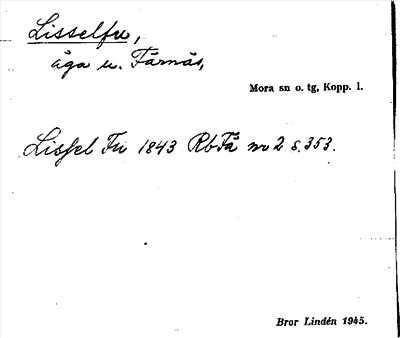 Lisselfu,
äga u. Färnäs,
Mora sn o. tg, Kopp. l.
Lissel Fu 1843 RbFä nr 2 s. 353.
Bror Lindén 1945.